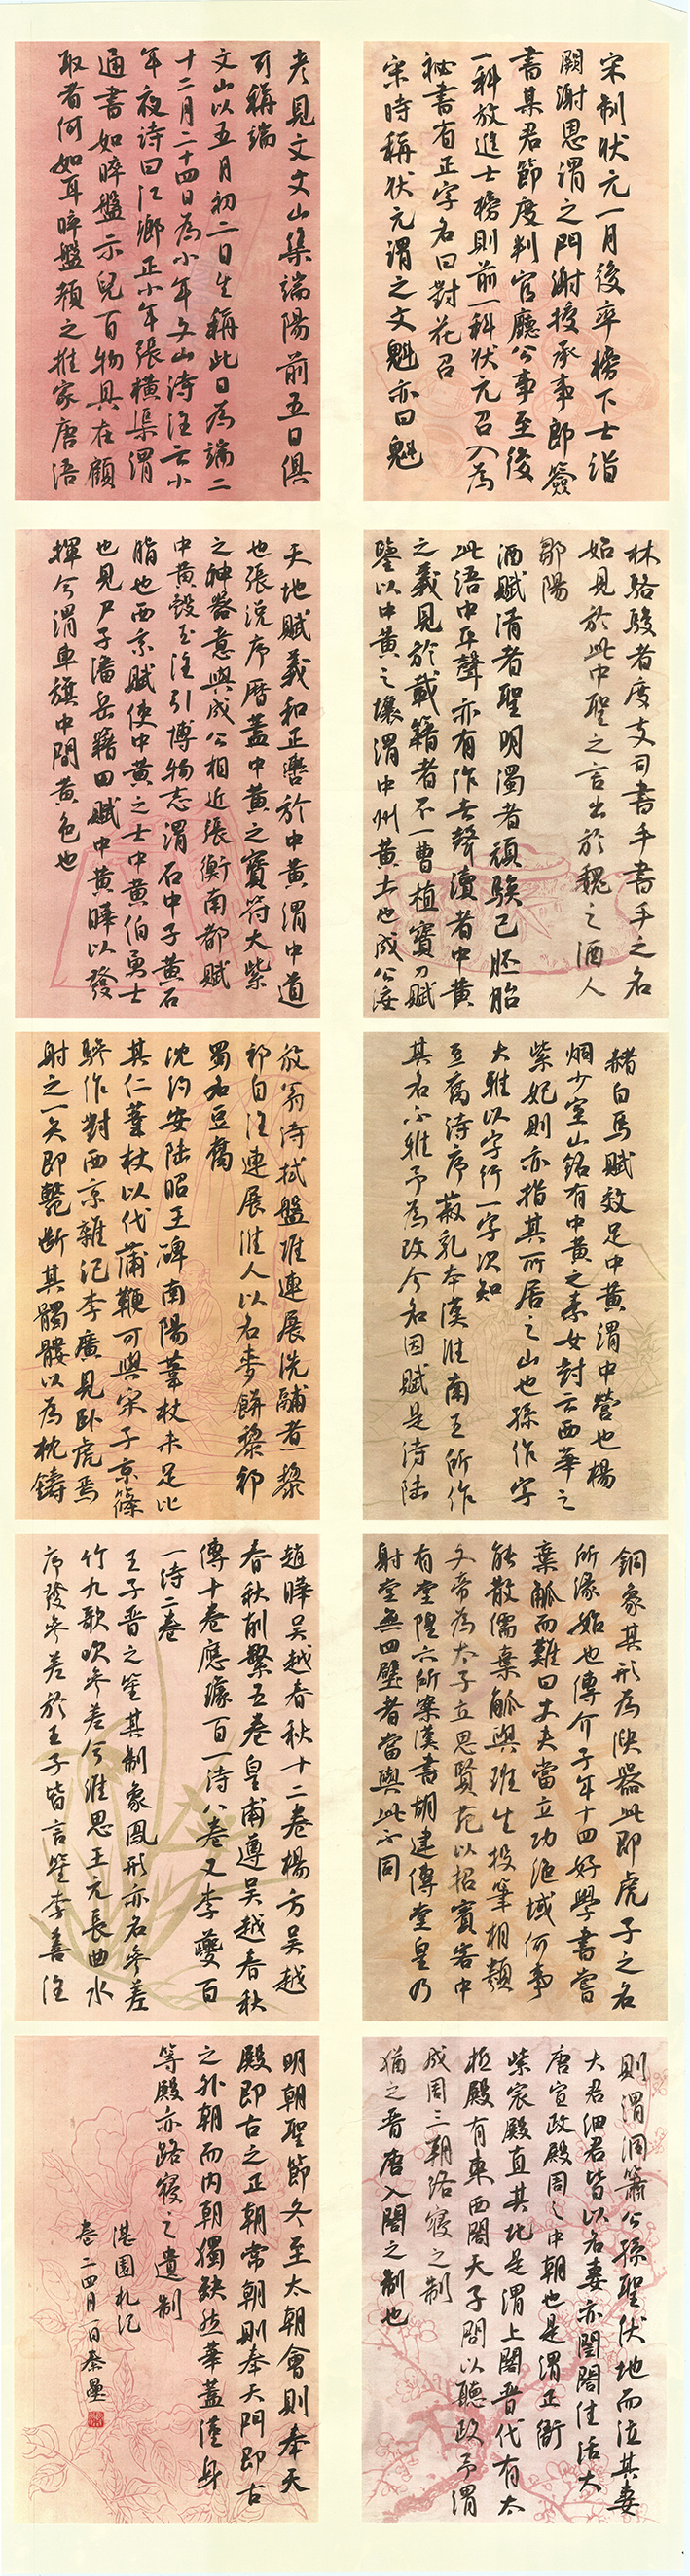 宋制狀元一月後率榜下士詣
闕謝恩謂之門謝授承事郎簽
書某君節度判官廳公事至後
一科放進士榜則前一科狀元召入為
秘書有正字名曰對花召
宋時稱狀元謂之文魁亦曰魁
考見文文山集端陽前五日俱
可稱端
文山以五月初二日生稱此日為端二
十二月二十四日為小年文山詩注云小
年夜詩曰江鄉正小年張橫渠謂
通書如晬盤示兒百物具在顧
取者何如耳晬盤類之推家唐語
林駱駿者度支司書手書手之名
始見於此中聖之言出於魏之酒人
鄒陽
酒賦清者聖明濁者頑騃已胚胎
此語中平聲亦有作去聲讀者中黃
之義見於載籍者不一曹植寶刀賦
鑒以中黃之壤謂中州黃土也成公綏
天地賦義和正轡於中黃謂中道
也張說序曆蓋中黃之寶符大紫
之神器意與成公相近張衡南都賦
中黃瑴玉注引博物志謂石中子黃石
脂也西京賦使中黃之士中黃伯勇士
也見尸子潘岳籍田賦中黃曄以發
揮兮謂車旗中間黃色也
赭白馬賦效足中黃謂中營也楊
炯少室山銘有中黃之素女對云西華之
紫妃則亦指其所居之山也孫作字
大雅以字行一字次知
豆腐詩序菽乳本漢淮南王所作
其名不雅予為改今名因賦是詩陸
放翁詩拭盤堆連展洗釂煮黎
祁自注連展淮人以名麥餅黎祁
蜀名豆腐
沈約安陸昭王碑南陽葦杖未足比
其仁葦杖以代蒲鞭可與宋子京篠
驂作對西京雜記李廣見臥虎焉
射之一矢即斃斷其髑髏以為枕鑄
銅象其形為溲器此即虎子之名
所溕始也傅介子年十四好學書嘗
棄觚而難曰大丈夫當立功絕域何事
能散儒棄觚與班生投筆相類
文帝為太子立思賢苑以招賓客中
有堂隍六所案漢書胡建傳堂皇乃
射堂無四壁者當與此不同
趙曄吳越春秋十二卷楊方吳越
春秋削繁五卷皇甫遵吳越春秋
傳十卷應璩百一詩八卷又李夔百
一詩二卷
王子晉之笙其制象鳳形亦名參差
竹九歌吹參差兮誰思王元長曲水
序發參差於王子皆言笙李善注
則謂洞簫公孫聖伏地而泣其妻
大君細君皆以名妻亦閨閤佳話大
唐宣政殿周之中朝也是謂正衙
紫宸殿直其北是謂上閤晉代有太
極殿有東西閤天子間以聽政予謂
成周三朝路寢之制
猶之晉唐入閤之制也
明朝聖節冬至大朝會則奉天
殿即古之正朝常朝則奉天門即古
之外朝而內朝獨缺然華蓋謹身
等殿亦路寢之遺制
湛園札記
卷二四月一日秦墨